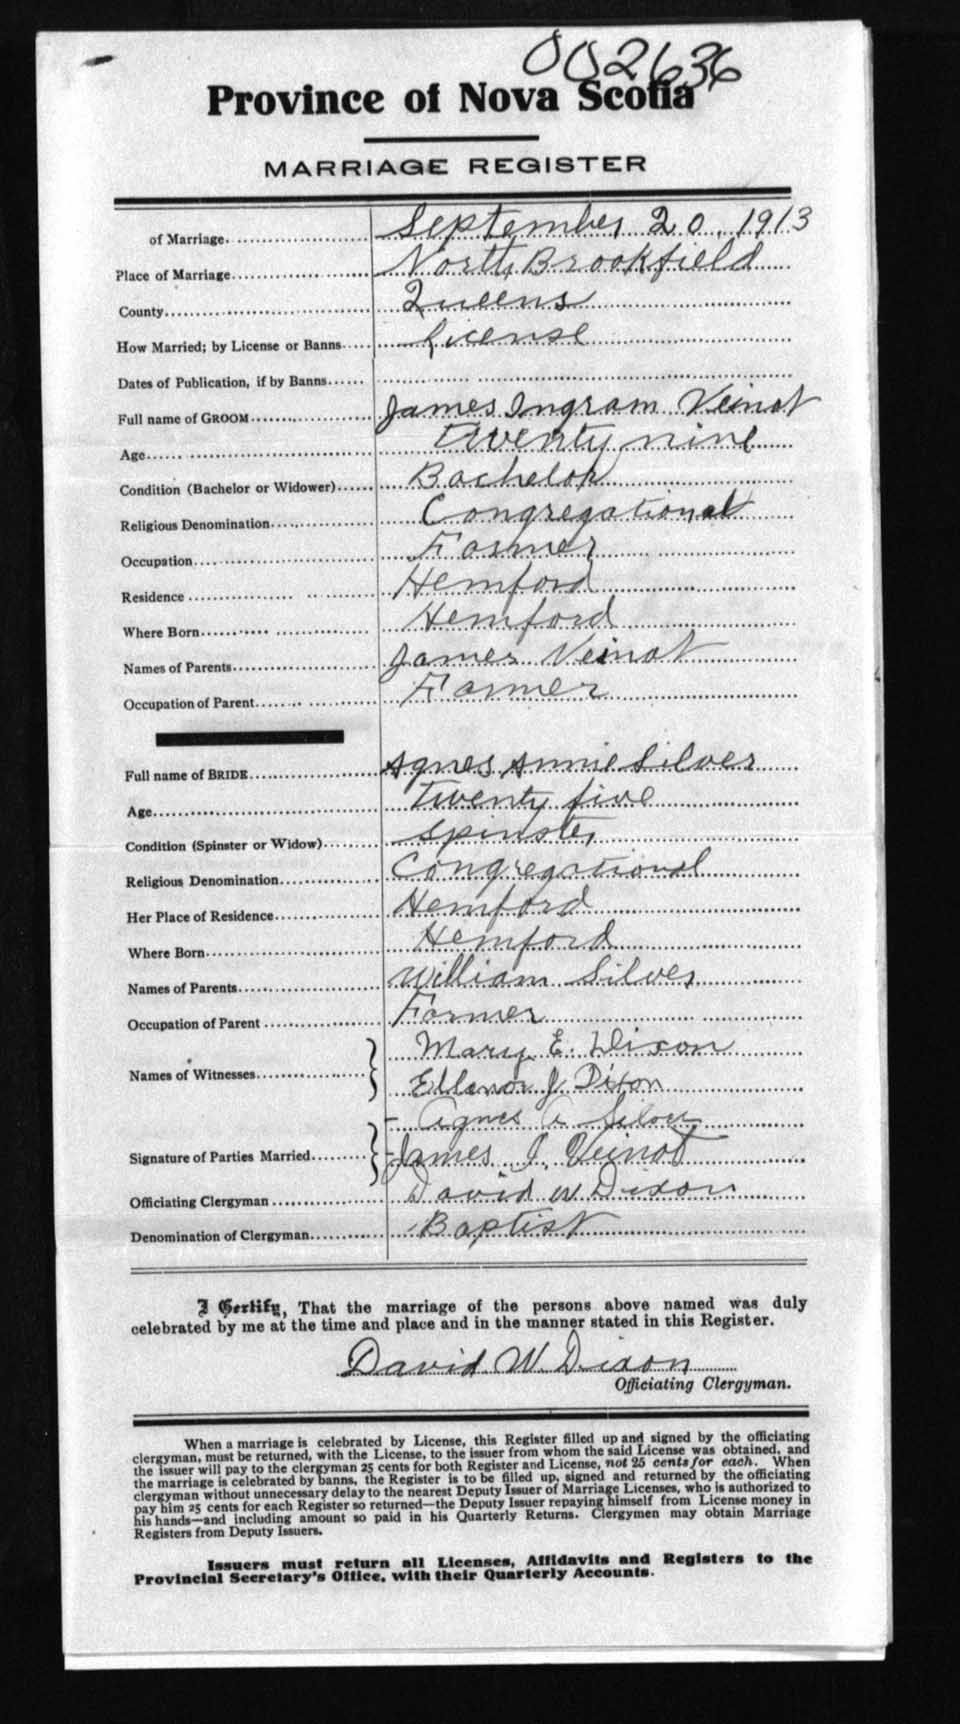 002636
Province of Nova Scotia
MARRIAGE REGISTER
of Marriage. September 20, 1913
Place of Marriage North Brookfield
County Queens
How Married; by License or Banns license
Dates of Publication, if by Banns
Full name of GROOM James Ingram Veinot
Age twenty nine
Condition (Bachelor or Widower) Bachelor
Religious Denomination Congregational
Occupation Farmer
Residence Hemford
Where Born Hemford
Names of Parents James Veinot
Occupation of Parent Farmer
Full name of BRIDE Agnes Annie Silver
Age twenty five
Condition (Spinster or Widow) Spinster
Religious Denomination Congregational
Her Place of Residence Hemford
Where Born Hemford
Names of Parents William Silver
Occupation of Parent Farmer
Names of Witnesses Mary E. Dixon
Ellenor J. Dixon
Agnes A Silver
Signature of Parties Married James I. Veinot
Officiating Clergyman David W Dixon
Denomination of Clergyman Baptist
I Certify, That the marriage of the persons above named was duly
celebrated by me at the time and place and in the manner stated in this Register.
David W. Dixon
Officiating Clergyman.
When a marriage is celebrated by License, this Register filled up and signed by the officiating
clergyman, must be returned, with the License, to the issuer from whom the said License was obtained, and
the issuer will pay to the clergyman 25 cents for both Register and License, not 25 cents for each. When
the marriage is celebrated by banns, the Register is to be filled up, signed and returned by the officiating
clergyman without unnecessary delay to the nearest Deputy Issuer of Marriage Licenses, who is authorized to
pay him 25 cents for each Register so returned—the Deputy Issuer repaying himself from License money in
his hands—and including amount so paid in his Quarterly Returns. Clergymen may obtain Marriage
Registers from Deputy Issuers.
Issuers must return all Licenses, Affidavits and Registers to the
Provincial Secretary's Office, with their Quarterly Accounts.